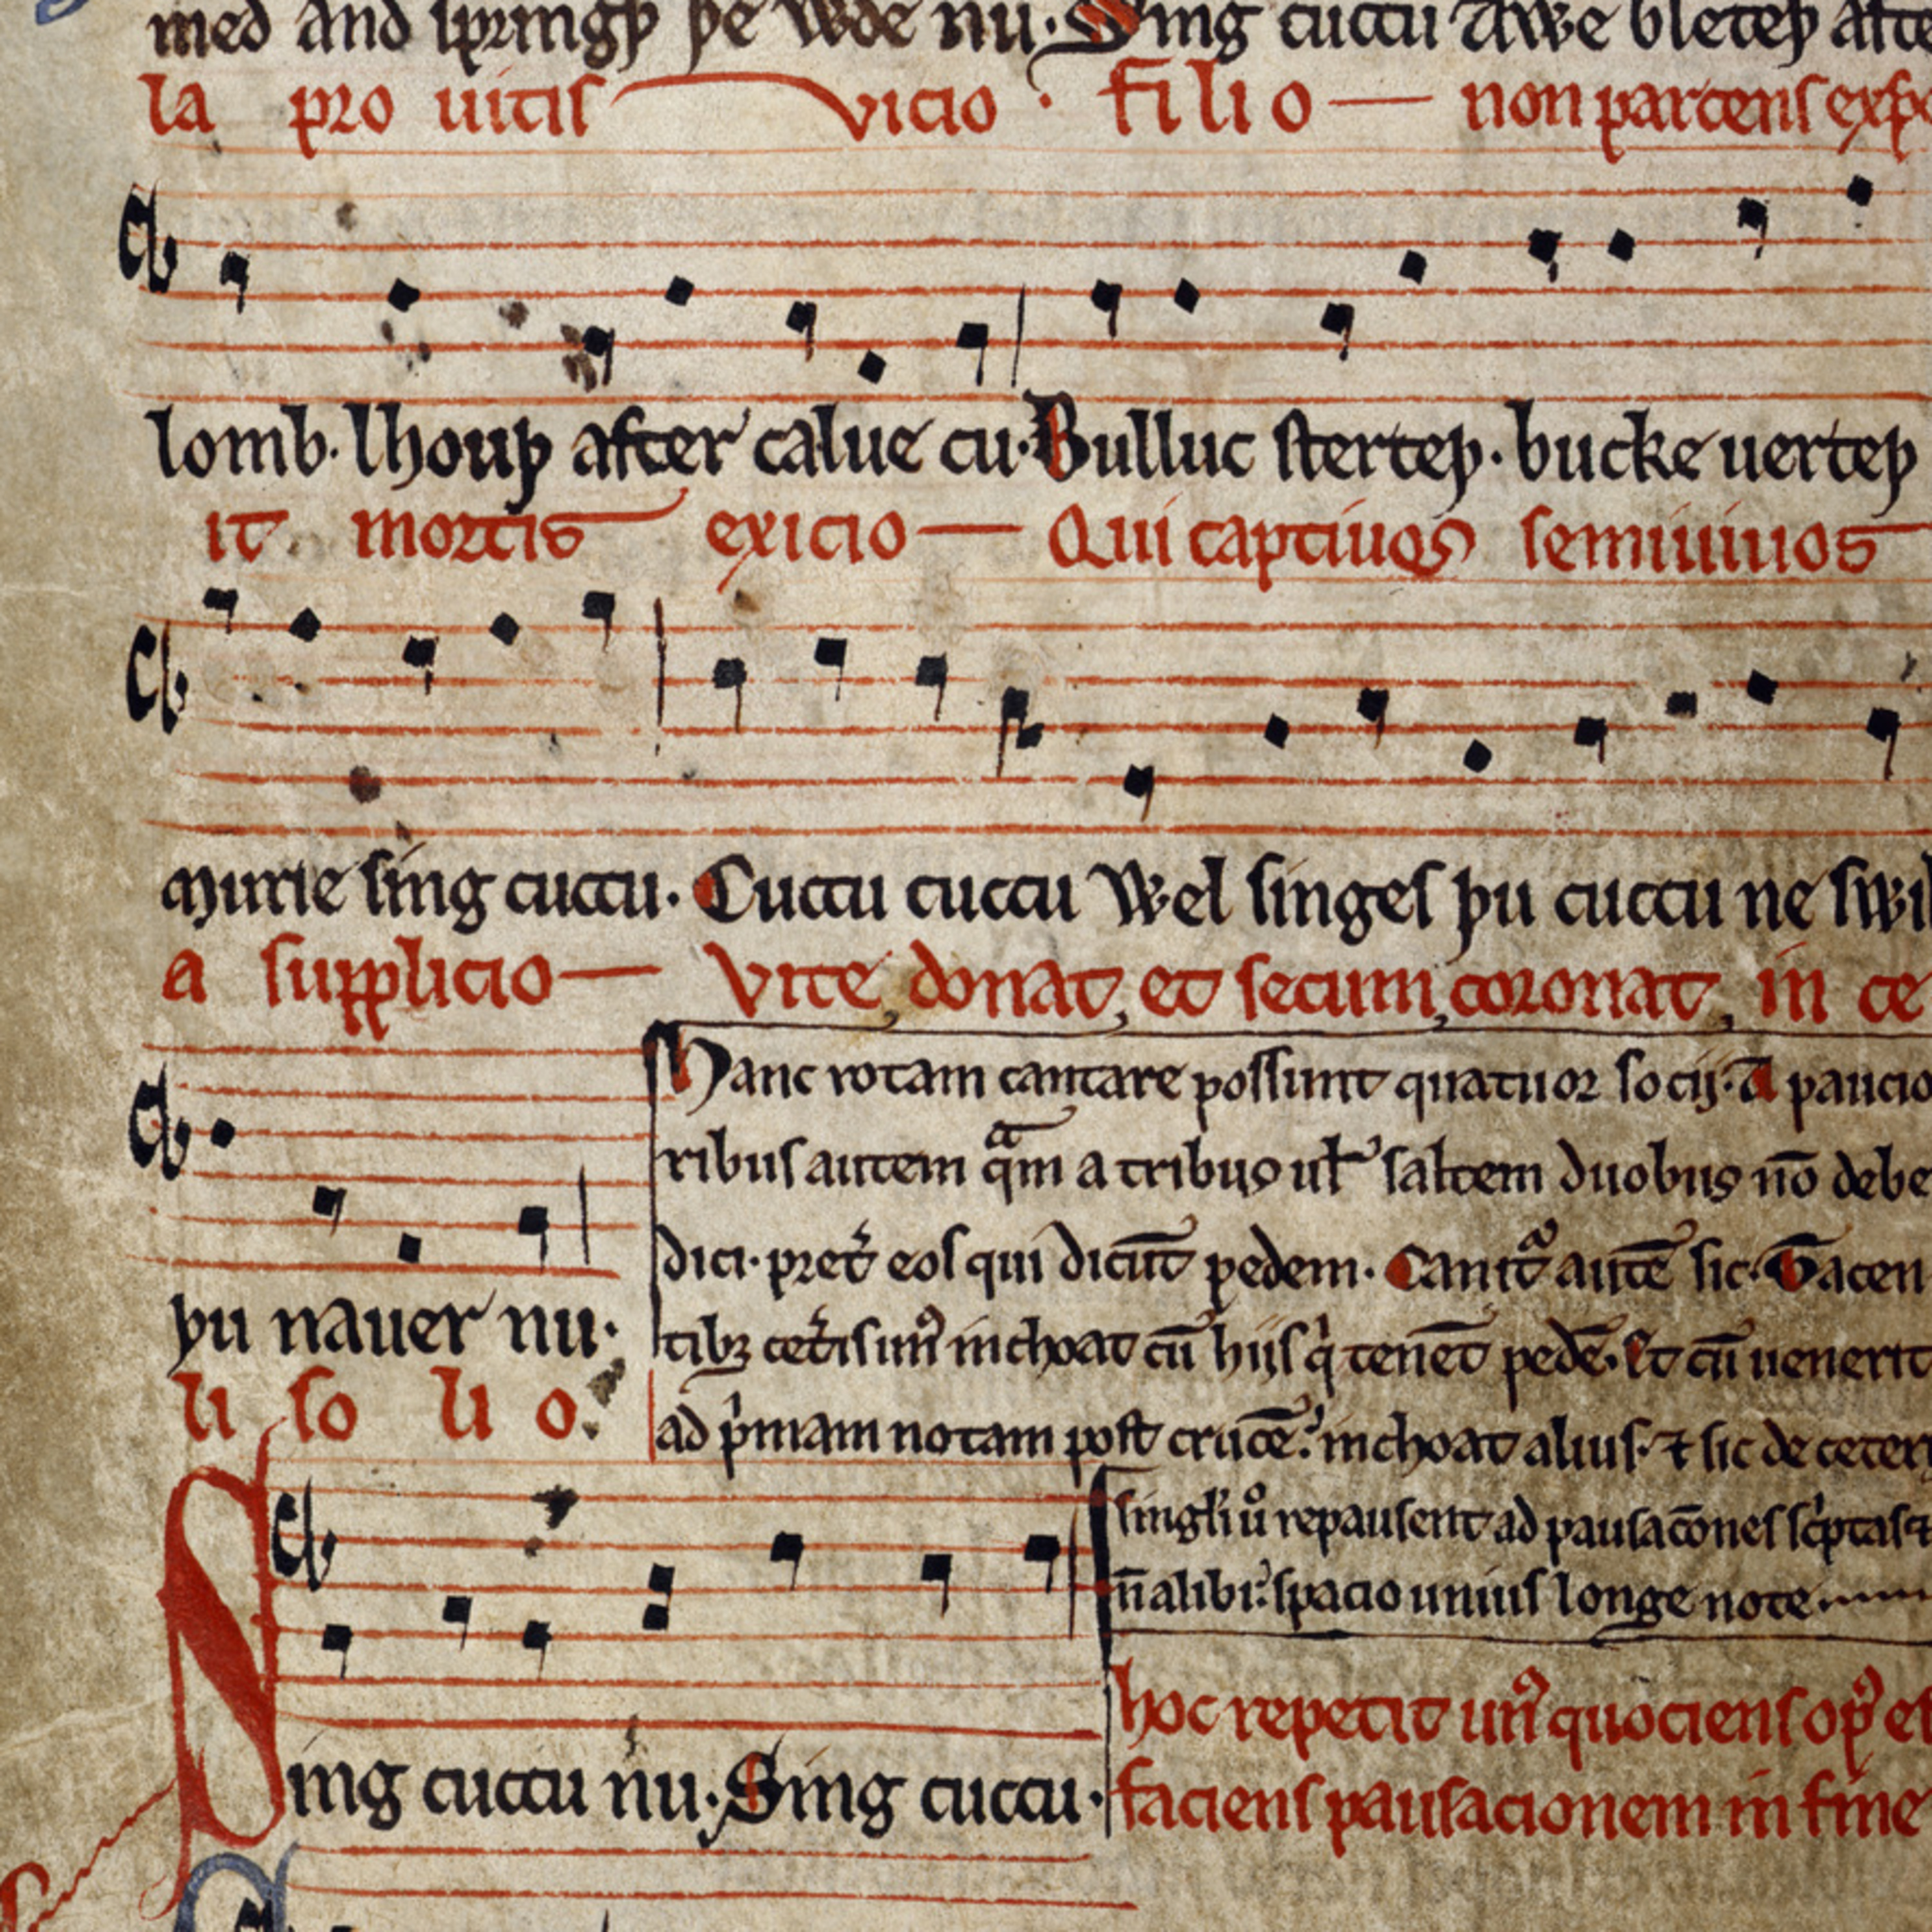 med and springþ þe wde nu. Sing cuccu Awe bleteþ afte
la pro uitis vicio . filio — non parcens exp
lomb. lhouþ after calue cu. Bulluc sterteþ. bucke uerteþ
it mortis exicio — Qui captiuos semiuiuos
murie sing cuccu. Cuccu cuccu Wel singes þu cuccu ne swi
a supplicio — vite donat, et secum, coronat, in ce
þu nauer nu.
li so li o.
Hanc rotam cantare possunt quatuor socij. A paucio
ribus autem qᵃm a tribus ul' saltem duobus nō debe
dici. pret' eos qui dicūt pedem. Canit' autē sic. Tacen
tibȝ cet'is un' inchoat cū hijs q' tenēt pedē. Et cū uenerit
ad p'mam notam post crucē. inchoat alius. ⁊ sic de ceter
singli ů repausent ad pausacōnes sc'ptas ⁊
n̄ alibi. spacio unius longe note
Sing cuccu nu. Sing cuccu.
hoc repetit un' quociens op' e
faciens pausacionem in fine